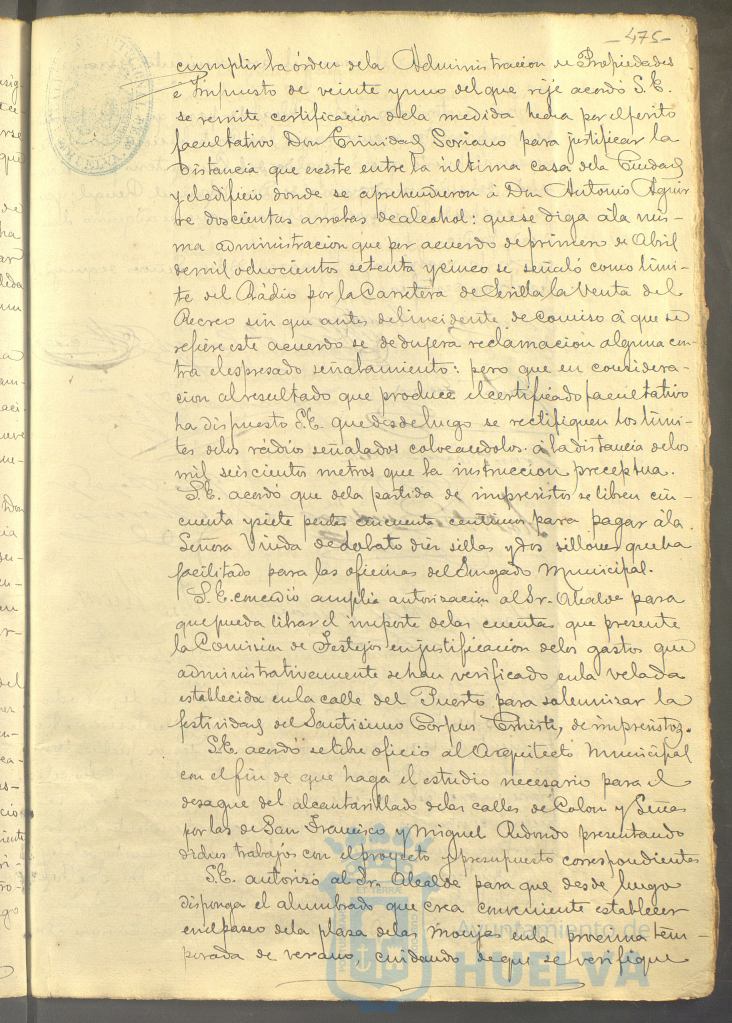 -475-
cumplir la órden de la Administracion de Propiedades
é Impuesto de veinte y uno del que rije acordó S.E.
se remite certificacion de la medida hecha por el perito
facultativo Don Trinidad Soriano para justificar la
distancia que existe entre la última casa de la Ciudad
y el edificio donde se aprehendieron á Don Antonio Aguir
re doscientas arrobas de alcohol: que se diga á la mis-
ma administracion que por acuerdo de primero de Abril
de mil ochocientos setenta y cinco se señaló como lími-
te del Rádio por la Carretera de Sevilla la Venta del
Recreo sin que antes del incidente de comiso á que se
refiere este acuerdo se dedujera reclamacion alguna con
tra el espresado señalamiento: pero que en considera-
cion al resultado que produce el certificado facultativo
ha dispuesto S.E. que desde luego se rectifiquen los lími-
tes de los rádios señalados colocandolos á la distancia de los
mil seiscientos metros que la instruccion preceptua.
S.E. acordó que de la partida de imprevistos se libren cin-
cuenta y siete pesetas cincuenta centimos para pagar á la
Señora Viuda de Lobato diez sillas y dos sillones que ha
facilitado para las oficinas del Juzgado Municipal.
S.E. concedió amplia autorizacion al Sr. Alcalde para
que pueda librar el importe de las cuenta que presente
la Comision de Festejos en justificacion de los gastos que
administrativamente se han verificado en la velada
establecida en la calle del Puerto para solemnizar la
festividad del Santisimo Corpus Christi, de imprevistos.
S.E. acordó se libre oficio al Arquitecto Municipal
con el fin de que haga el estudio necesario para el
desague del alcantarillado de las calles de Colon y
por las de San Francisco y Miguel Redondo presentando
dichos trabajos con el proyecto y presupuesto correspondientes
S.E. autorizó al Sr. Alcalde para que desde luego
disponga el alumbrado que crea conveniente establecer
en el paseo de la plaza de las Monjas en la proxima tem-
porada de verano, cuidando de que se verifique
Ayuntamiento de
HUELVA